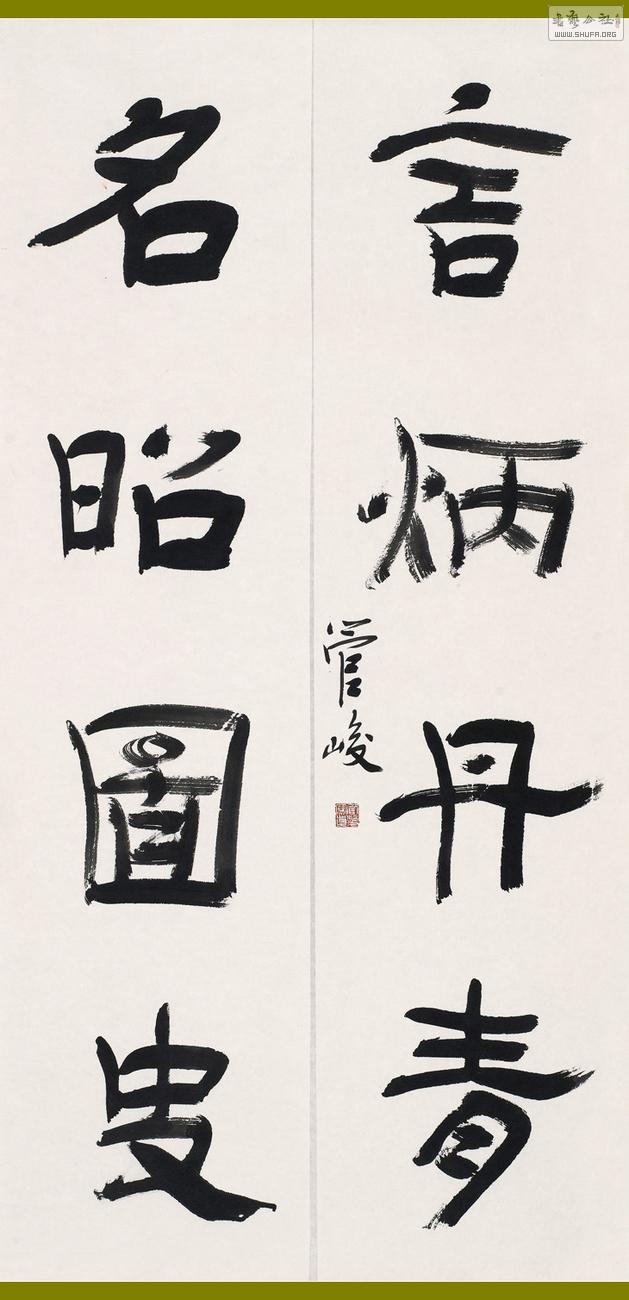 言炳丹青
名昭圖史
管峻
書藝公社
WWW.SHUFA.ORG